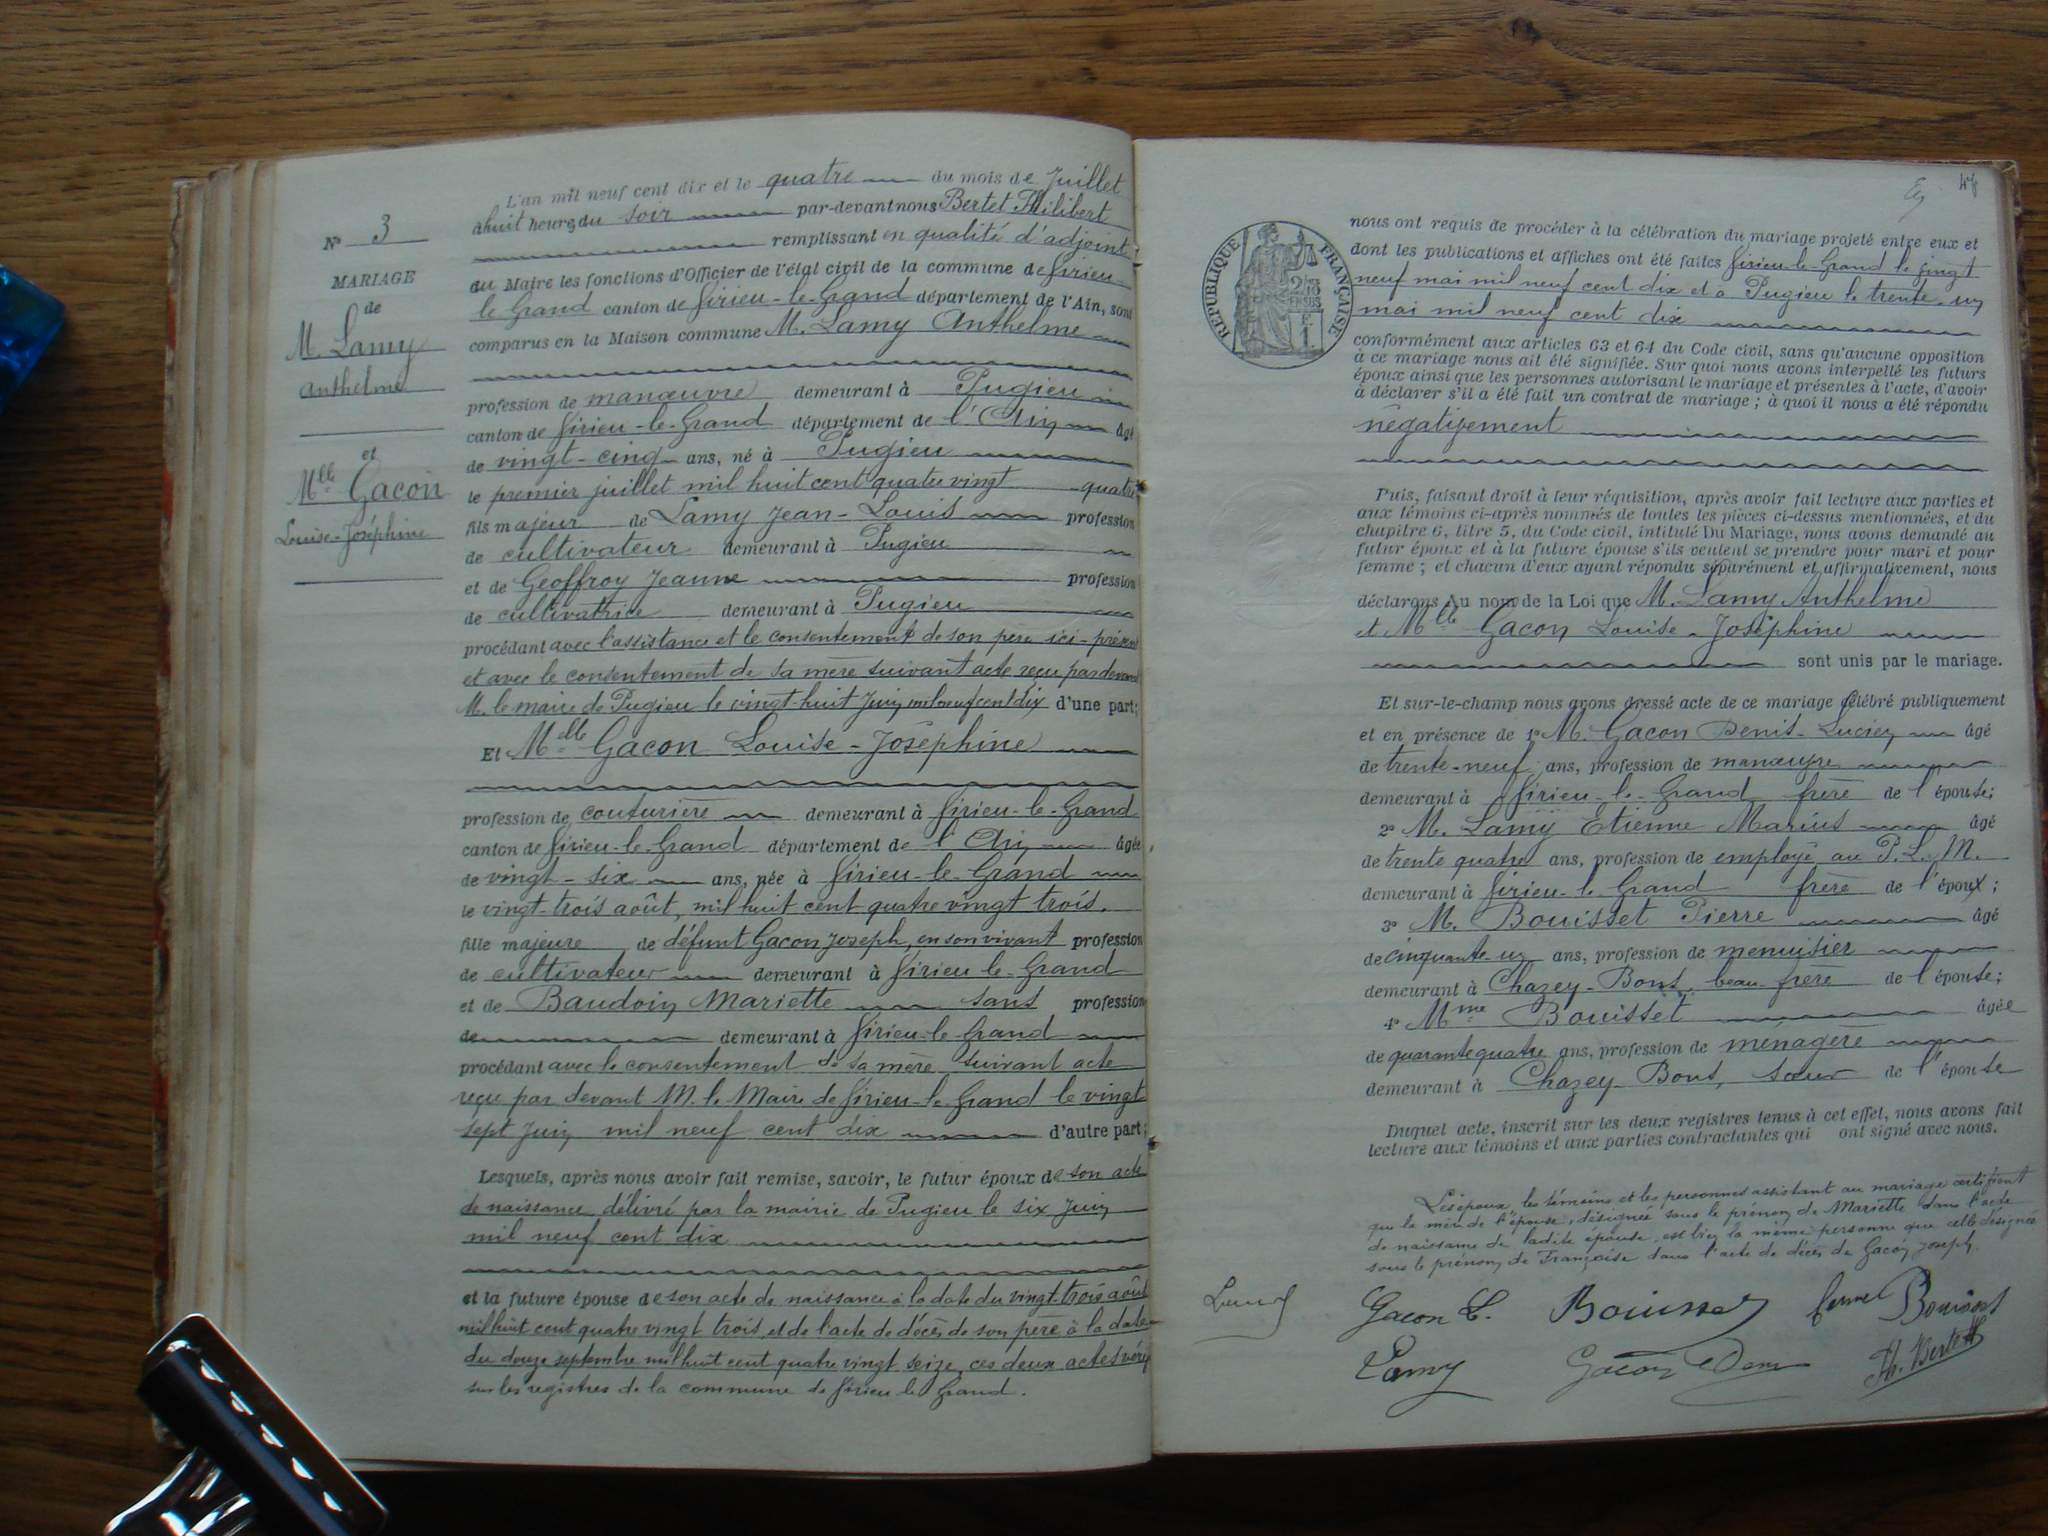 L'an mil neuf cent dix et le quatre du mois de Juillet
à huit heures du soir par-devant nous Bertet Philibert
N° 3
remplissant en qualité d'adjoint
MARIAGE
au Maire les fonctions d'Officier de l'état civil de la commune de Virieu
de
le Grand canton de Virieu-le-Grand département de l'Ain, sont
M. Lamy
comparus en la Maison commune M. Lamy Anthelme
Anthelme
profession de manœuvre demeurant à Pugieu
canton de Virieu-le-Grand département de l'Ain âgé
et
de vingt-cinq ans, né à Pugieu
Mlle Gacon
le premier juillet mil huit cent quatre vingt quatre
Louise-Joséphine
fils majeur de Lamy Jean-Louis profession
de cultivateur demeurant à Pugieu
et de Geoffroy Jeanne profession
de cultivatrice demeurant à Pugieu
procédant avec l'assistance et le consentement de son père ici-présent
et avec le consentement de sa mère suivant acte reçu par devant
M. le maire de Pugieu le vingt-huit Juin mil neuf cent dix d'une part;
Et Mlle Gacon Louise-Joséphine
profession de couturière demeurant à Virieu-le-Grand
canton de Virieu-le-Grand département de l'Ain âgée
de vingt-six ans, née à Virieu-le-Grand
le vingt-trois août, mil huit cent quatre vingt trois.
fille majeure de défunt Gacon Joseph, en son vivant profession
de cultivateur demeurant à Virieu le-Grand
et de Baudoin Mariette sans profession
de demeurant à Virieu-le Grand
procédant avec le consentement de sa mère suivant acte
reçu par devant M. le Maire de Virieu-le Grand le vingt
sept Juin mil neuf cent dix d'autre part;
Lesquels, après nous avoir fait remise, savoir, le futur époux de son acte
de naissance délivré par la mairie de Pugieu le six Juin
mil neuf cent dix
et la future épouse de son acte de naissance à la date du vingt-trois août
mil huit cent quatre vingt trois et de l'acte de décès de son père à la date
du douze septembre mil huit cent quatre vingt seize, ces deux actes
sur les registres de la commune de Virieu le Grand.
48
RÉPUBLIQUE FRANÇAISE
nous ont requis de procéder à la célébration du mariage projeté entre eux et
dont les publications et affiches ont été faites Virieu-le-Grand le vingt
neuf mai mil neuf cent dix et à Pugieu le trente-un
mai mil neuf cent dix
conformément aux articles 63 et 64 du Code civil, sans qu'aucune opposition
à ce mariage nous ait été signifiée. Sur quoi nous avons interpellé les futurs
époux ainsi que les personnes autorisant le mariage et présentes à l'acte, d'avoir
à déclarer s'il a été fait un contrat de mariage; à quoi il nous a été répondu
négativement
Puis, faisant droit à leur réquisition, après avoir fait lecture aux parties et
aux témoins ci-après nommés de toutes les pièces ci-dessus mentionnées, et du
chapitre 6, titre 5, du Code civil, intitulé Du Mariage, nous avons demandé au
futur époux et à la future épouse s'ils veulent se prendre pour mari et pour
femme; et chacun d'eux ayant répondu séparément et affirmativement, nous
déclarons Au nom de la Loi que M. Lamy Anthelme
et Mlle Gacon Louise-Joséphine
sont unis par le mariage.
Et sur-le-champ nous avons dressé acte de ce mariage célébré publiquement
et en présence de 1° M. Gacon Denis-Lucien âgé
de trente-neuf ans, profession de manœuvre
demeurant à Virieu-le-Grand frère de l'épouse;
2° M. Lamy Etienne Marius âgé
de trente quatre ans, profession de employé au P. L. M.
demeurant à Virieu-le Grand frère de l'époux;
3° M. Bouisset Pierre âgé
de cinquante-un ans, profession de menuisier
demeurant à Chazey-Bons, beau-frère de l'épouse;
4° Mme Bouisset âgée
de quarante quatre ans, profession de ménagère
demeurant à Chazey-Bons, sœur de l'épouse
Duquel acte, inscrit sur les deux registres tenus à cet effet, nous avons fait
lecture aux témoins et aux parties contractantes qui ont signé avec nous.
Les époux, les témoins et les personnes assistant au mariage certifient
que la mère de l'épouse, désignée sous le prénom de Mariette dans l'acte
de naissance de ladite épouse, est bien la même personne que celle désignée
sous le prénom de Françoise dans l'acte de décès de Gacon Joseph.
Gacon L. Bouisset femme Bouisset
Lamy Gacon Denis Ph. Bertet